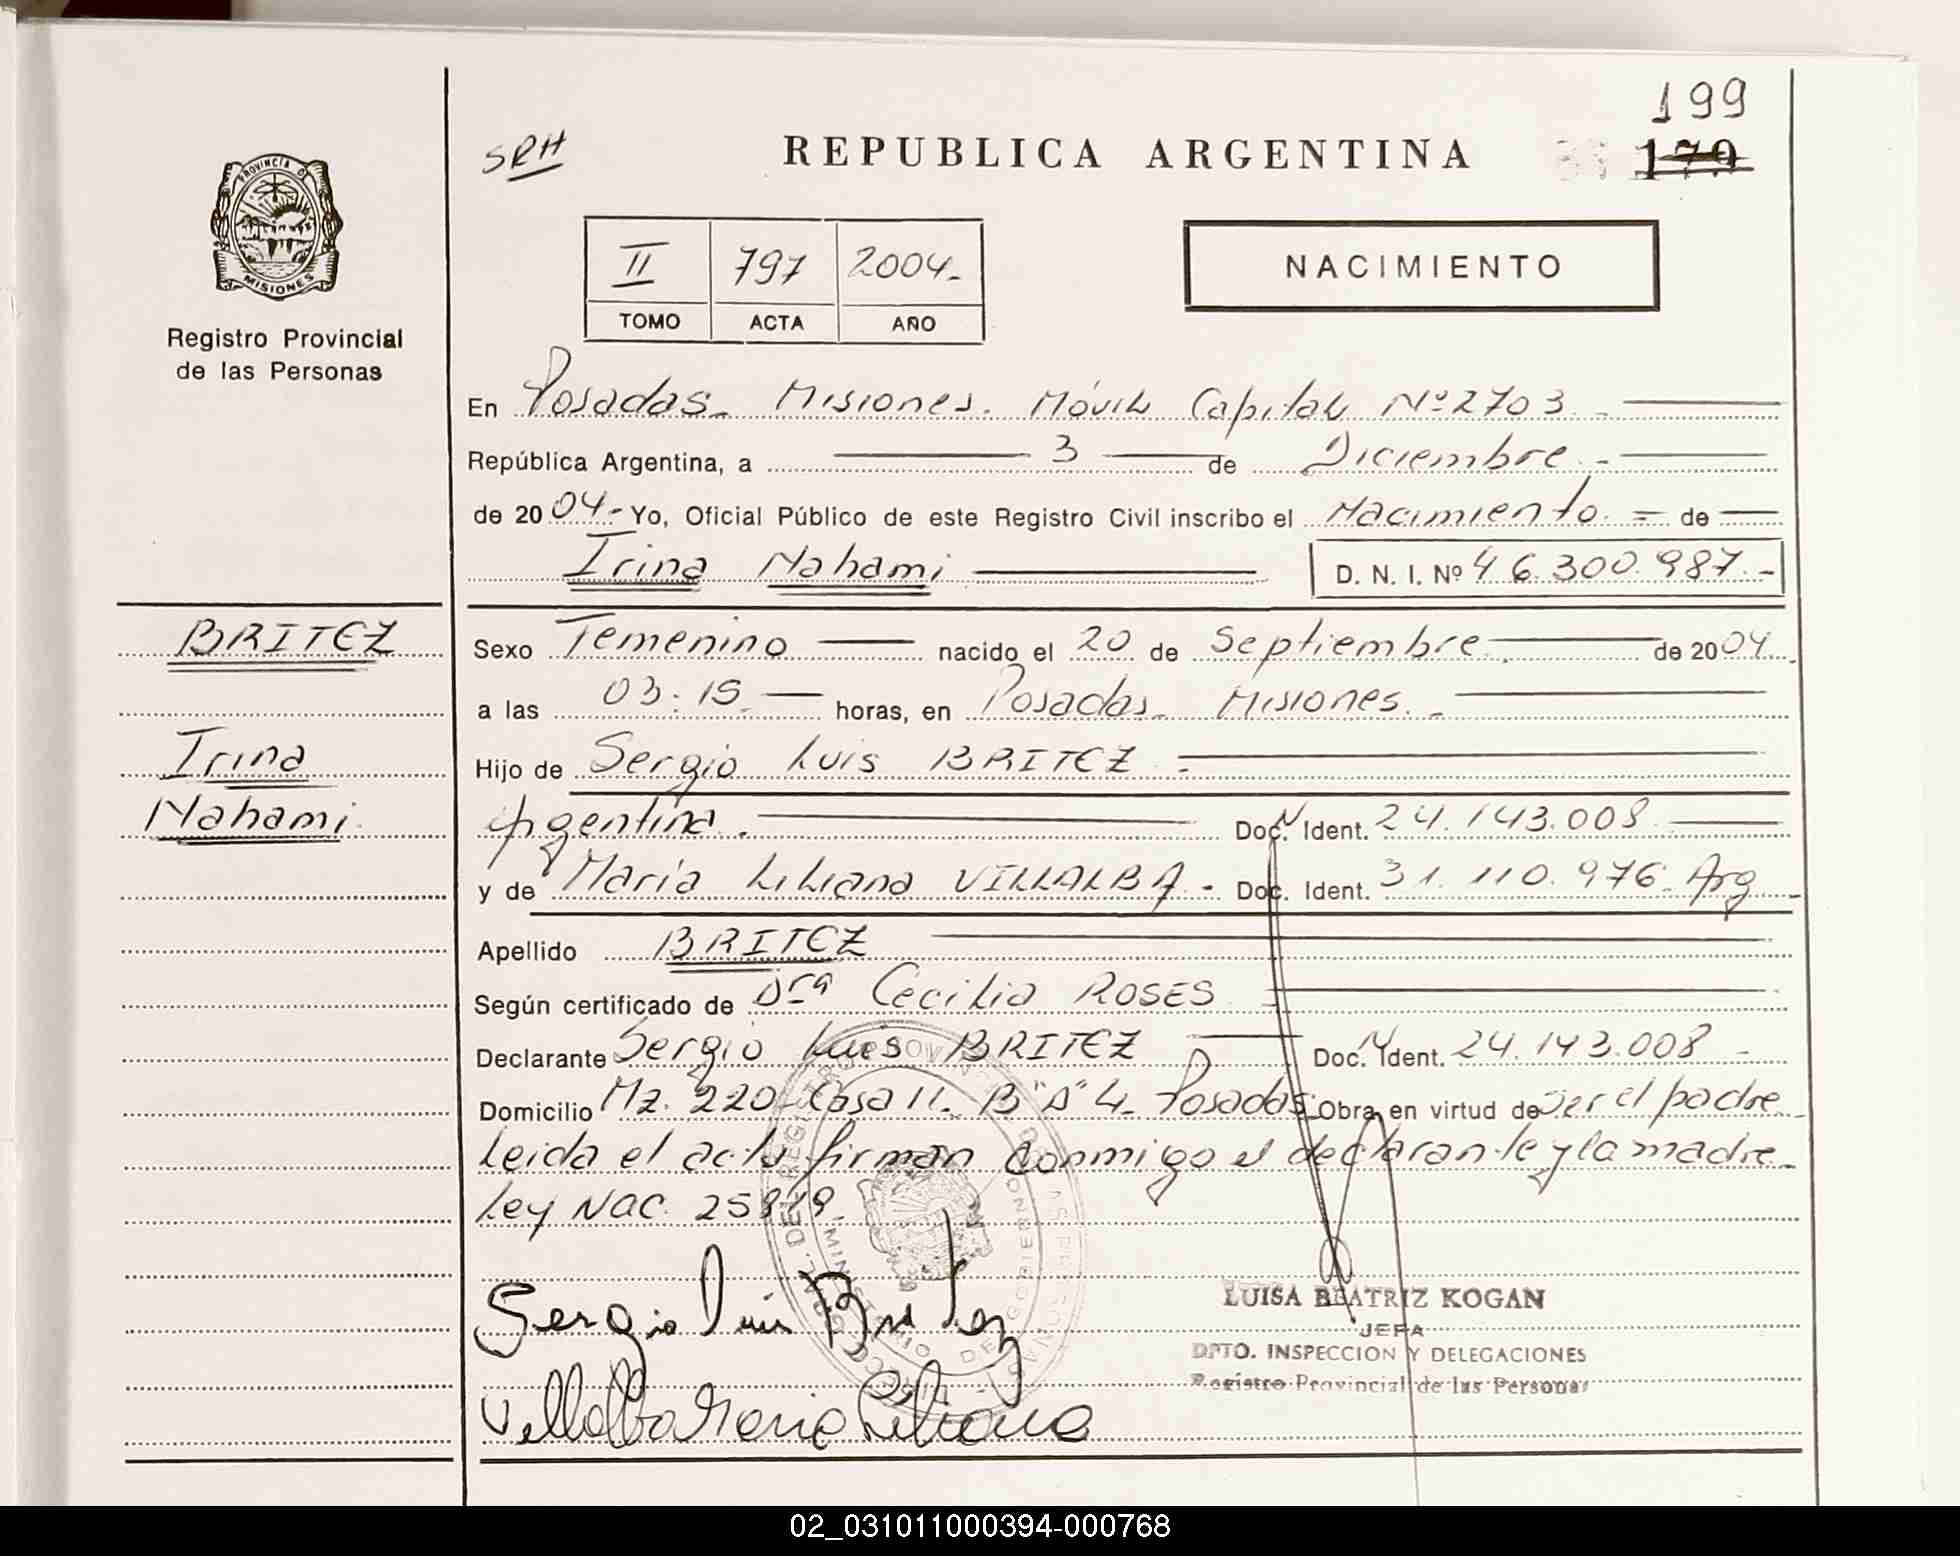 199
SRH
REPUBLICA ARGENTINA
179
PROVINCIA DE
MISIONES
Registro Provincial
de las Personas
II 797 2004-
TOMO ACTA AÑO
NACIMIENTO
En Posadas- Misiones. Móvil Capital Nº 2703 -
República Argentina, a 3 de Diciembre -
de 2004- Yo, Oficial Público de este Registro Civil inscribo el Nacimiento = de
Irina Nahami D. N. I. Nº 46.300.987.-
BRITEZ
Irina
Nahami
Sexo Femenino nacido el 20 de Septiembre de 2004
a las 03:15 horas, en Posadas- Misiones. -
Hijo de Sergio Luis BRITEZ
Argentina. Doc. Ident. 24.143.008
y de María Liliana VILLALBA - Doc. Ident. 31.110.976- Arg
Apellido BRITEZ
Según certificado de Dra Cecilia ROSES
Declarante Sergio Luis BRITEZ Doc. Ident. 24.143.008 -
Domicilio Mz. 220- Casa 11- Bº "A" 4- Posadas Obra en virtud de ser el padre
Leida el acta firman conmigo el declarante y la madre-
Ley NAC.
Sergio Luis Britez
Villalba Maria Liliana
LUISA BEATRIZ KOGAN
JEFA
DPTO. INSPECCION Y DELEGACIONES
Registro Provincial de las Personas
02_031011000394-000768